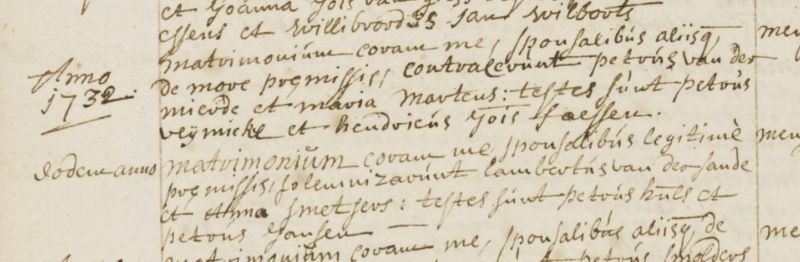 et Joanna Jois van
essens et Willibrordus Jan Wilborts
matrimonium coram me, sponsalibus aliisq,
Anno
1732.
de more pręmissis, contraxerunt petrus van der
mierde et maria martens: testes sunt petrus
veijmicke et hendricus Jois faessen.
Eodem anno
matrimonium coram me, sponsalibus legitimè
pręmissis, solemnizarunt lambertus van der sande
et Anna smetsers: testes sunt petrus huls et
petrus Jansen
matrimonium coram me, sponsalibus aliisq, de
petrus smolders
men
men
me